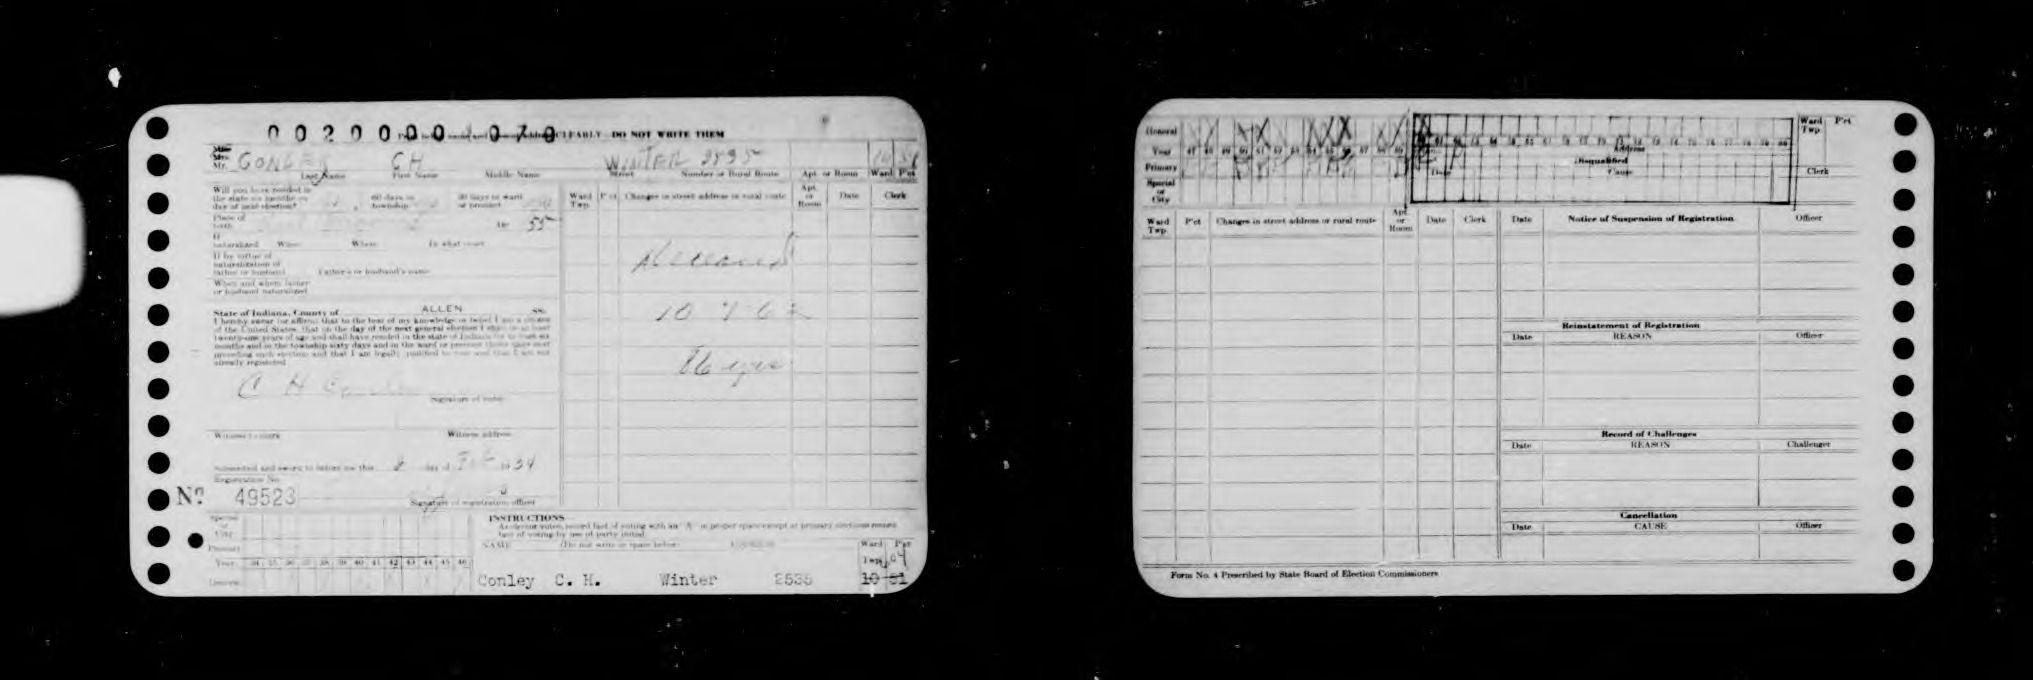 0020000 070 CLEARLY DO NOT WRITE THEM
Miss
Mrs.
Mr. CONLEY CH WINTER 2535 10 51
Last Name First Name Middle Name Street Number or Rural Route Apt. or Room Ward P'ct
Will you have resided in
the state six months on 60 days in 30 days in ward
day of next election? township or precinct
Place of
birth 55
If
naturalized When Where In what court
If by virtue of
naturalization of
father or husband Father's or husband's name
When and where father
or husband naturalized
State of Indiana, County of ALLEN SS.
I hereby swear (or affirm) that to the best of my knowledge or belief I am a citizen
of the United States, that on the day of the next general election I shall be at least
twenty-one years of age and shall have resided in the state of Indiana six
months and in the township sixty days and in the ward or precinct thirty days next
preceding such election and that I am legally qualified to vote and that I am not
already registered
C H Conley
Signature of voter
Witness to mark Witness address
Subscribed and sworn to before me this 8 day of Feb 1934
Registration No.
No. 49523
Signature of registration officer
Ward
Twp. P'ct Changes in street address or rural route Apt.
or
Room Date Clerk
Deceased
10 9-62
Special
or
City
Primary
Year 34 35 36 37 38 39 40 41 42 43 44 45 46
General
INSTRUCTIONS
As elector votes, record fact of voting with an "X" in proper space except at primary elections record
fact of voting by use of party initial.
NAME (Do not write in space below) ADDRESS Ward P'ct
Twp.
Conley C. H. Winter 2535 10 51
General
Year 47 48 49 50 51 52 53 54 55 56 57 58 59
Primary
Special
or
City
Address
Disqualified
Date Cause
Ward
Twp. P'ct
Clerk
Ward
Twp. P'ct Changes in street address or rural route Apt.
or
Room Date Clerk
Date Notice of Suspension of Registration Officer
Reinstatement of Registration
Date REASON Officer
Record of Challenges
Date REASON Challenger
Cancellation
Date CAUSE Officer
Form No. 4 Prescribed by State Board of Election Commissioners